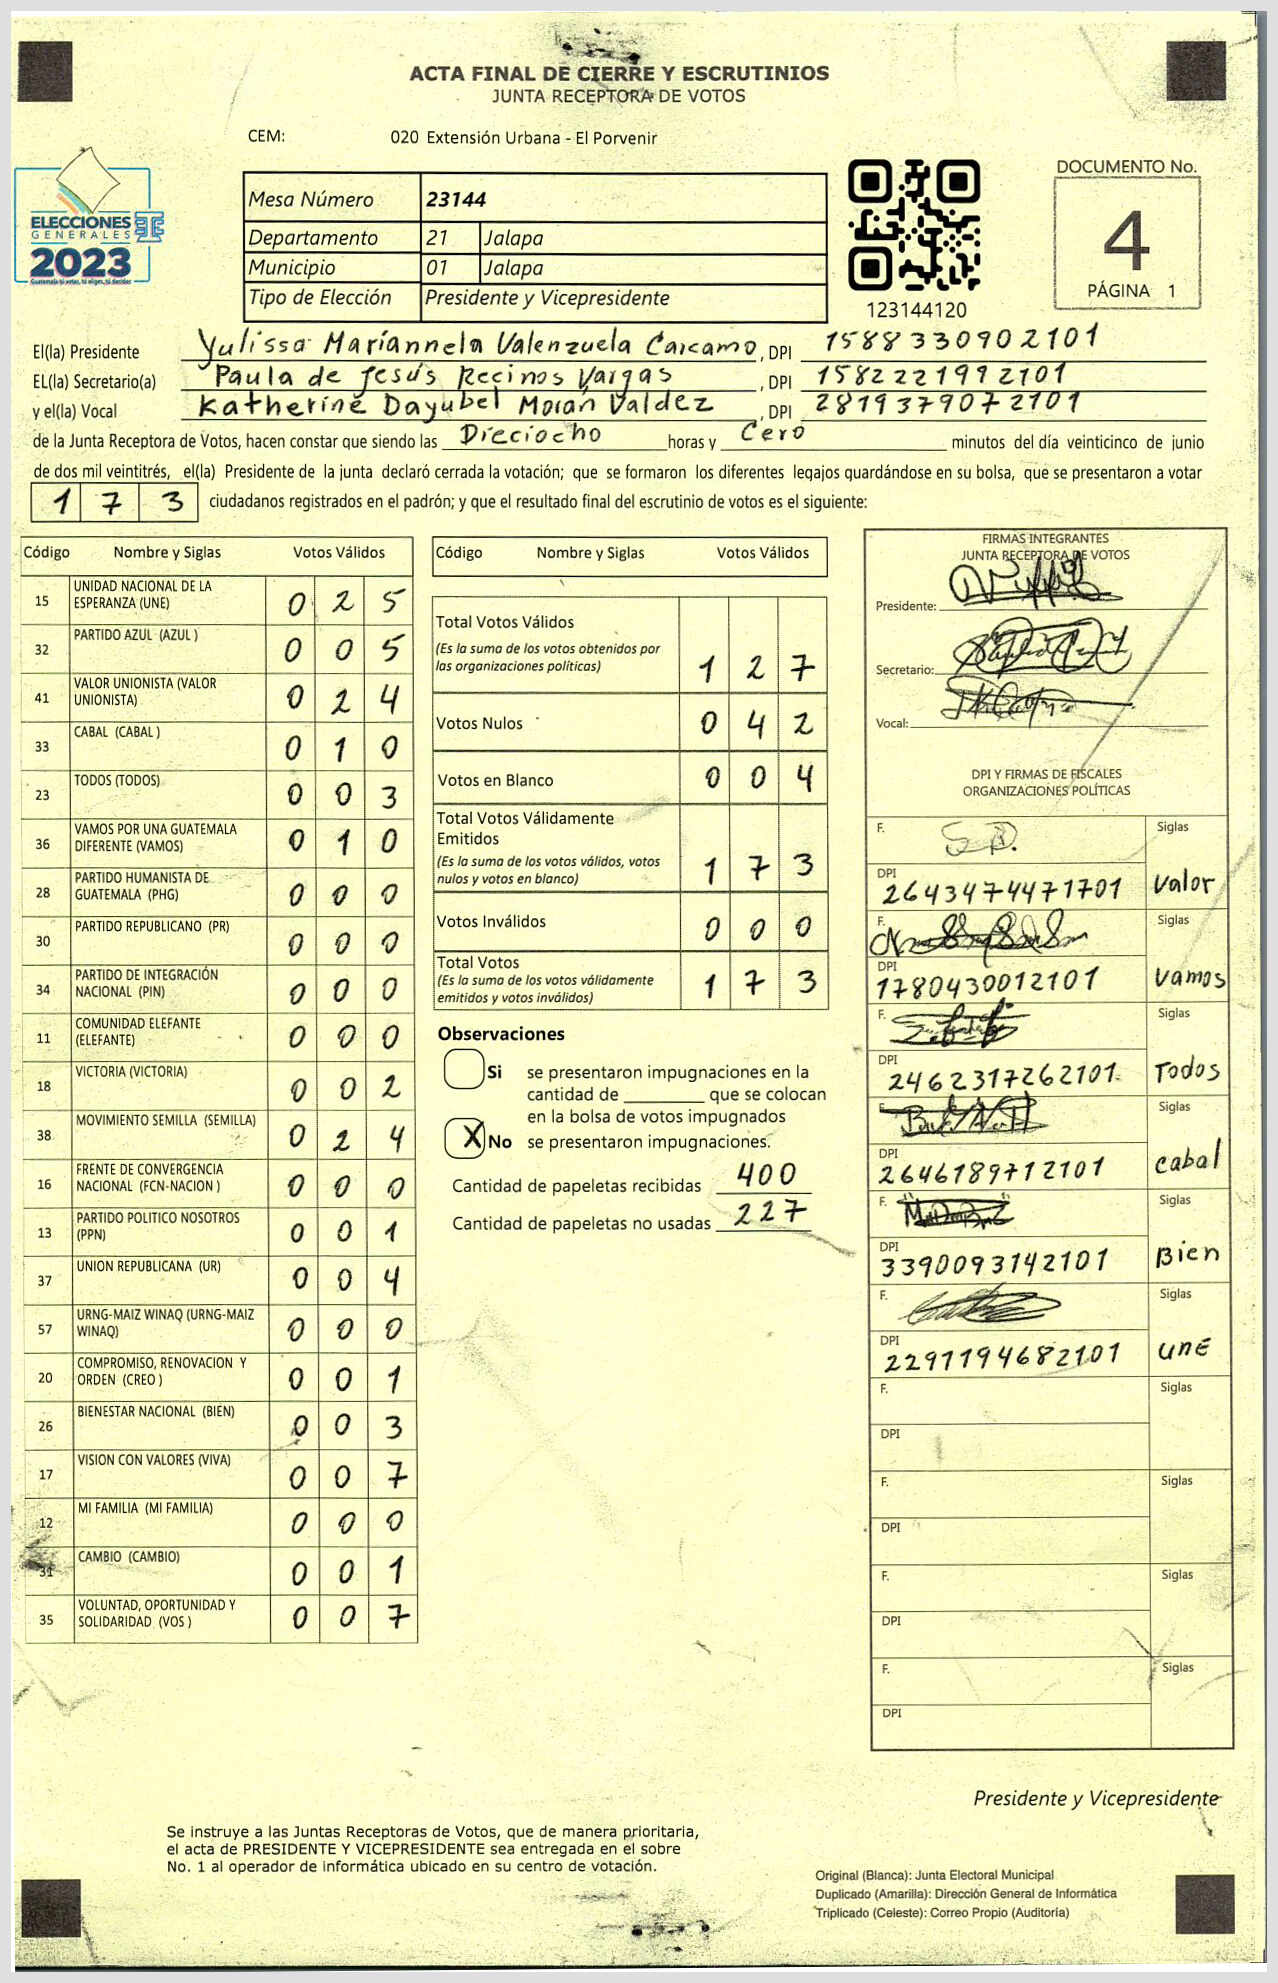 ACTA FINAL DE CIERRE Y ESCRUTINIOS
JUNTA RECEPTORA DE VOTOS
CEM: 020 Extensión Urbana - El Porvenir
ELECCIONES
GENERALES
2023
Guatemala tú votas, tú eliges, tú decides
Mesa Número 23144
Departamento 21 Jalapa
Municipio 01 Jalapa
Tipo de Elección Presidente y Vicepresidente
123144120
DOCUMENTO No.
4
PÁGINA 1
El(la) Presidente Yulissa Mariannela Valenzuela Carcamo, DPI 1588330902101
EL(la) Secretario(a) Paula de Jesús Recinos Vargas, DPI 1582221992101
y el(la) Vocal Katherine Dayubel Morán Valdez, DPI 2819379072101
de la Junta Receptora de Votos, hacen constar que siendo las Dieciocho horas y Cero minutos del día veinticinco de junio
de dos mil veintitrés, el(la) Presidente de la junta declaró cerrada la votación; que se formaron los diferentes legajos quardándose en su bolsa, que se presentaron a votar
173 ciudadanos registrados en el padrón; y que el resultado final del escrutinio de votos es el siguiente:
Código Nombre y Siglas Votos Válidos
15 UNIDAD NACIONAL DE LA ESPERANZA (UNE) 0 2 5
32 PARTIDO AZUL (AZUL ) 0 0 5
41 VALOR UNIONISTA (VALOR UNIONISTA) 0 2 4
33 CABAL (CABAL ) 0 1 0
23 TODOS (TODOS) 0 0 3
36 VAMOS POR UNA GUATEMALA DIFERENTE (VAMOS) 0 1 0
28 PARTIDO HUMANISTA DE GUATEMALA (PHG) 0 0 0
30 PARTIDO REPUBLICANO (PR) 0 0 0
34 PARTIDO DE INTEGRACIÓN NACIONAL (PIN) 0 0 0
11 COMUNIDAD ELEFANTE (ELEFANTE) 0 0 0
18 VICTORIA (VICTORIA) 0 0 2
38 MOVIMIENTO SEMILLA (SEMILLA) 0 2 4
16 FRENTE DE CONVERGENCIA NACIONAL (FCN-NACION ) 0 0 0
13 PARTIDO POLITICO NOSOTROS (PPN) 0 0 1
37 UNION REPUBLICANA (UR) 0 0 4
57 URNG-MAIZ WINAQ (URNG-MAIZ WINAQ) 0 0 0
20 COMPROMISO, RENOVACION Y ORDEN (CREO ) 0 0 1
26 BIENESTAR NACIONAL (BIEN) 0 0 3
17 VISION CON VALORES (VIVA) 0 0 7
12 MI FAMILIA (MI FAMILIA) 0 0 0
31 CAMBIO (CAMBIO) 0 0 1
35 VOLUNTAD, OPORTUNIDAD Y SOLIDARIDAD (VOS ) 0 0 7
Código Nombre y Siglas Votos Válidos
Total Votos Válidos
(Es la suma de los votos obtenidos por
las organizaciones políticas) 1 2 7
Votos Nulos 0 4 2
Votos en Blanco 0 0 4
Total Votos Válidamente
Emitidos
(Es la suma de los votos válidos, votos
nulos y votos en blanco) 1 7 3
Votos Inválidos 0 0 0
Total Votos
(Es la suma de los votos válidamente
emitidos y votos inválidos) 1 7 3
Observaciones
Si se presentaron impugnaciones en la
cantidad de ________ que se colocan
en la bolsa de votos impugnados
X No se presentaron impugnaciones.
Cantidad de papeletas recibidas 400
Cantidad de papeletas no usadas 227
FIRMAS INTEGRANTES
JUNTA RECEPTORA DE VOTOS
Presidente:
Secretario:
Vocal:
DPI Y FIRMAS DE FISCALES
ORGANIZACIONES POLÍTICAS
F. Siglas
DPI 2643474471701 Valor
F. Siglas
DPI 1780430012101 Vamos
F. Siglas
DPI 2462317262101 Todos
F. Siglas
DPI 2646189712101 cabal
F. Siglas
DPI 3390093142101 Bien
F. Siglas
DPI 2291194682101 UNE
F. Siglas
DPI
F. Siglas
DPI
F. Siglas
DPI
F. Siglas
DPI
Presidente y Vicepresidente
Se instruye a las Juntas Receptoras de Votos, que de manera prioritaria,
el acta de PRESIDENTE Y VICEPRESIDENTE sea entregada en el sobre
No. 1 al operador de informática ubicado en su centro de votación.
Original (Blanca): Junta Electoral Municipal
Duplicado (Amarilla): Dirección General de Informática
Triplicado (Celeste): Correo Propio (Auditoría)